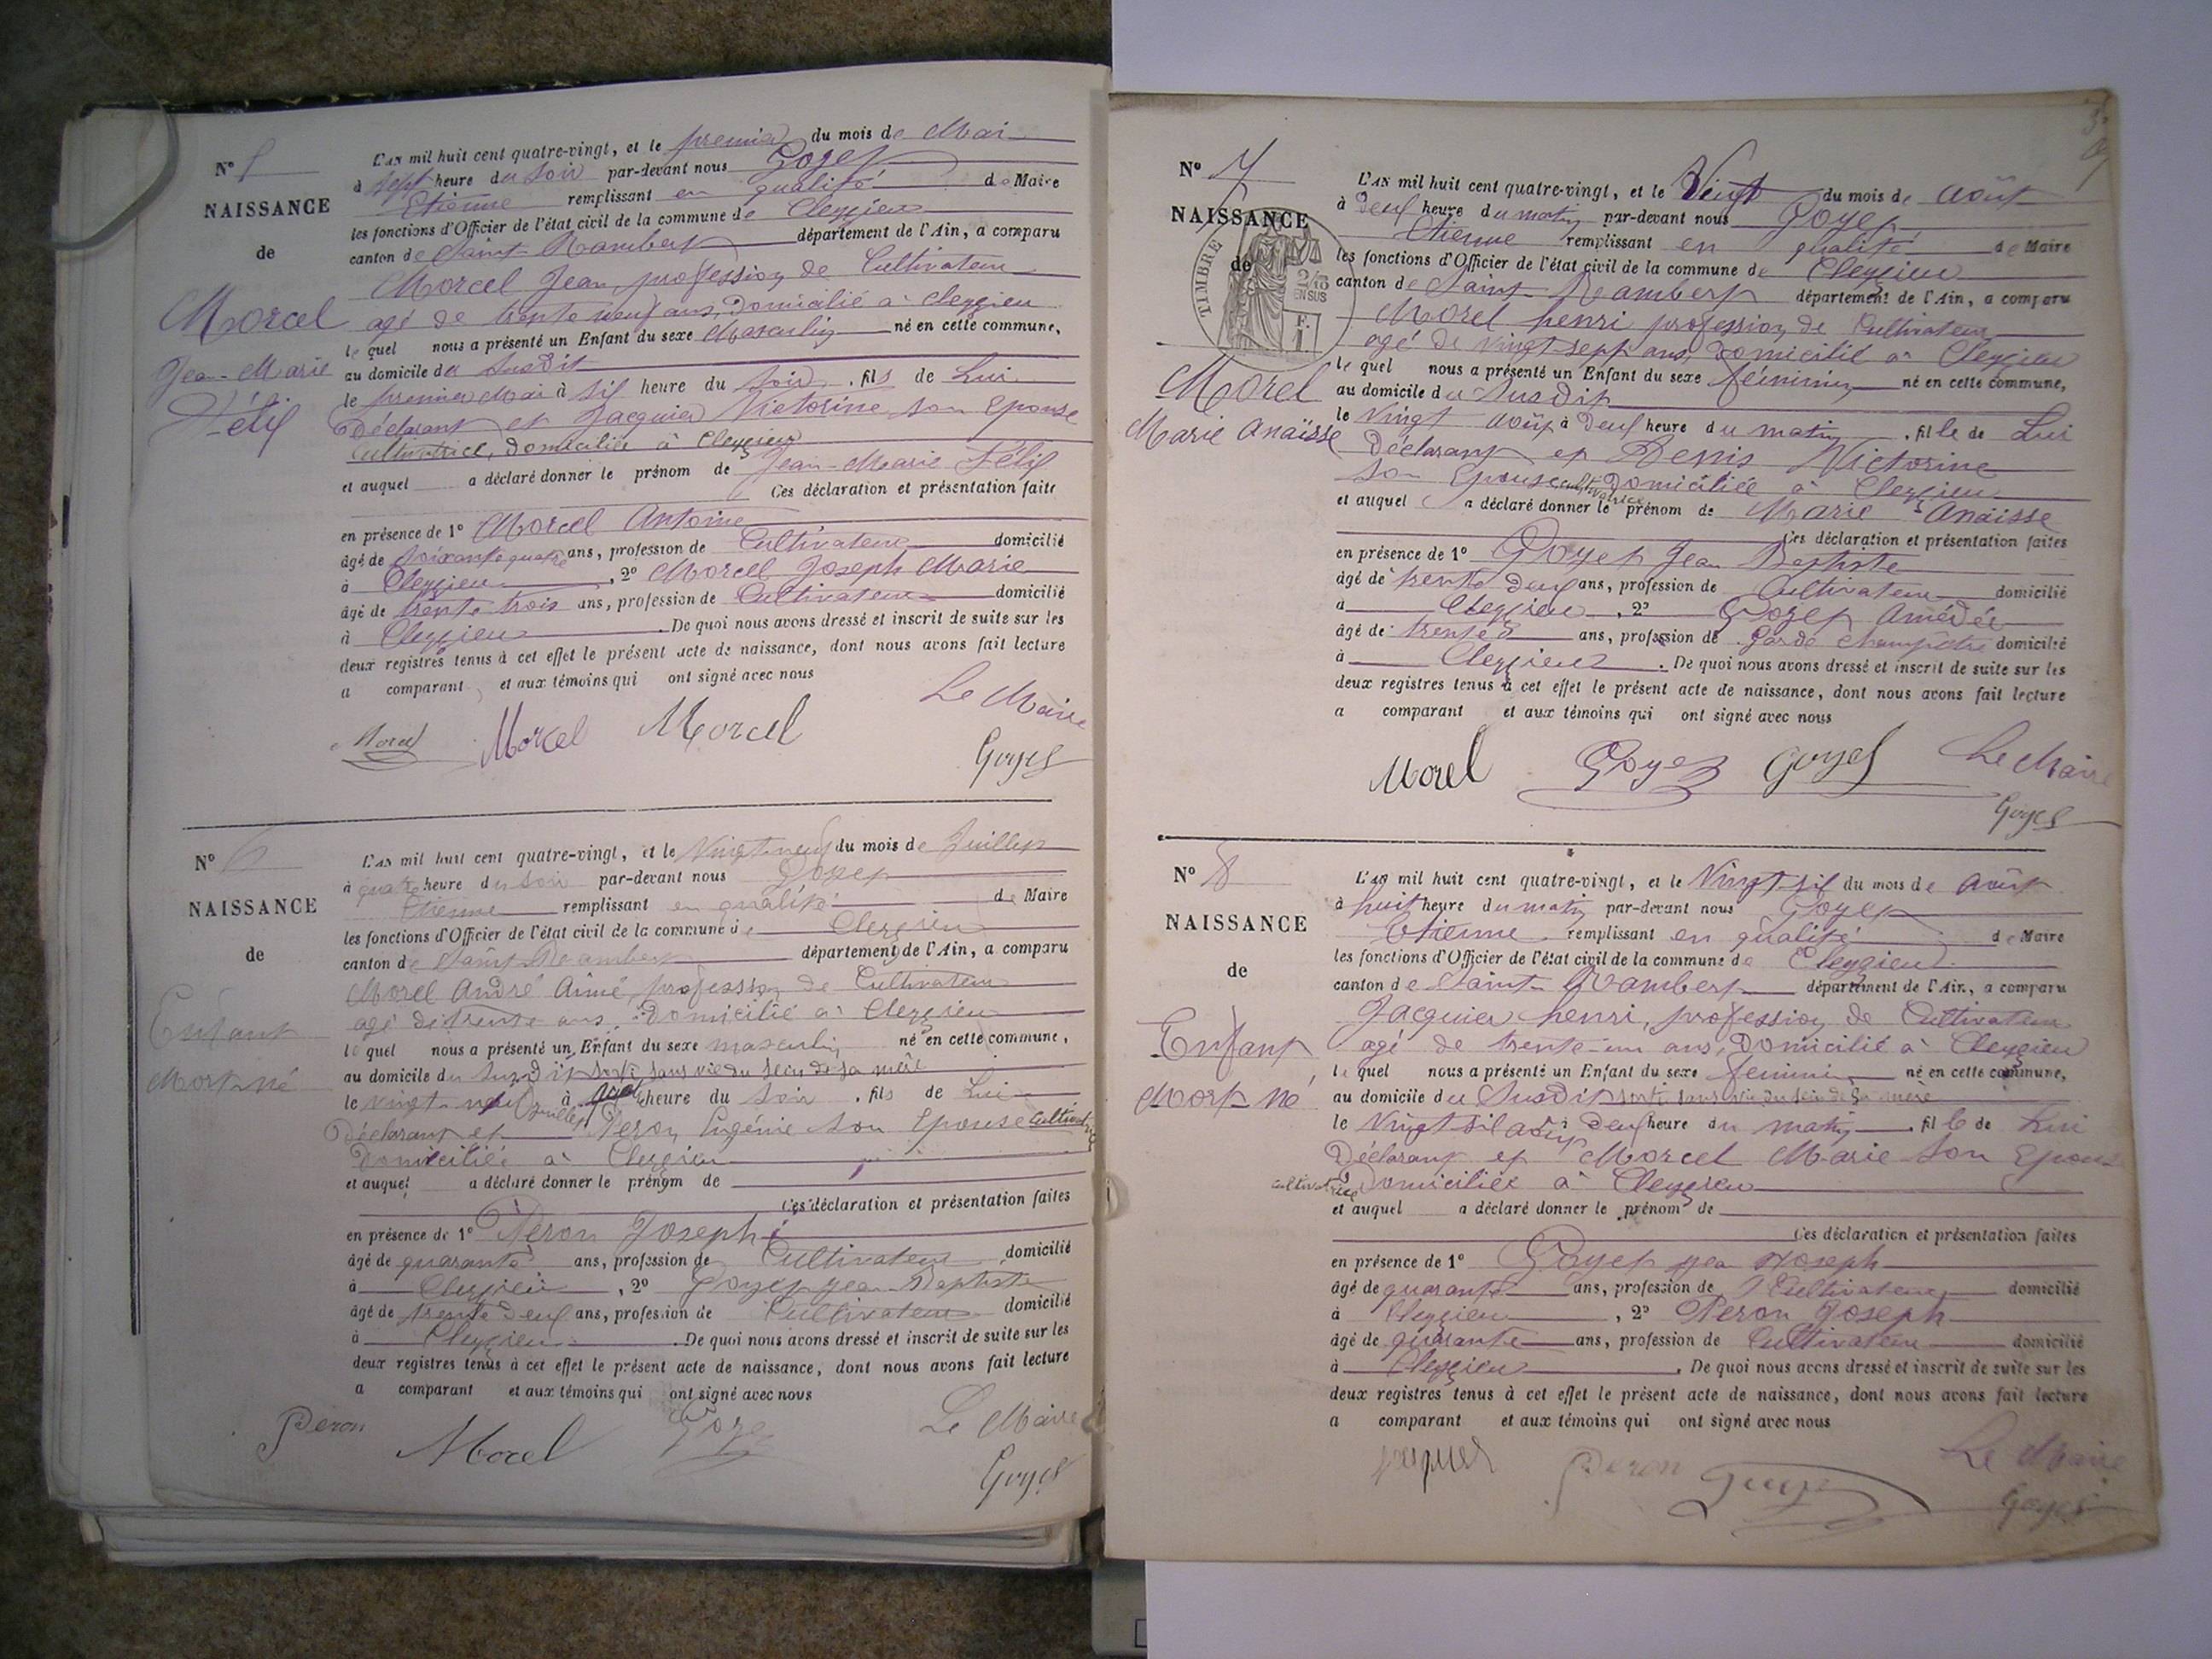 N° 5
NAISSANCE
de
Morcel
Jean-Marie
Félix
L'AN mil huit cent quatre-vingt, et le premier du mois de Mai
à sept heure du soir par-devant nous Goyet
Etienne remplissant en qualité de Maire
les fonctions d'Officier de l'état civil de la commune de Cleyzieu
canton de Saint-Rambert département de l'Ain, a comparu
Morcel Jean profession de Cultivateur
agé de trente neuf ans, Domicilié à Cleyzieu
lequel nous a présenté un Enfant du sexe Masculin né en cette commune,
au domicile du Susdit
le premier Mai à six heure du soir, fils de Lui
Déclarant et Jacquier Victorine son Epouse
Cultivatrice, Domiciliée à Cleyzieu
et auquel a déclaré donner le prénom de Jean-Marie Félix
Ces déclaration et présentation faite
en présence de 1° Morcel Antoine
âgé de soixante quatre ans, profession de Cultivateur domicilié
à Cleyzieu, 2° Morcel Joseph Marie
âgé de trente trois ans, profession de Cultivateur domicilié
à Cleyzieu. De quoi nous avons dressé et inscrit de suite sur les
deux registres tenus à cet effet le présent acte de naissance, dont nous avons fait lecture
a comparant et aux témoins qui ont signé avec nous
Le Maire
Morcel Morcel Morcel
Goyet
N° 6
NAISSANCE
de
Enfant
Mort né
L'AN mil huit cent quatre-vingt, et le Vingt-neuf du mois de Juillet
à quatre heure du soir par-devant nous Goyet
Etienne remplissant en qualité de Maire
les fonctions d'Officier de l'état civil de la commune de Cleyzieu
canton de Saint-Rambert département de l'Ain, a comparu
Morel André Aimé, profession de Cultivateur
agé de trente ans, Domicilié à Cleyzieu
lequel nous a présenté un Enfant du sexe masculin né en cette commune,
au domicile du Susdit sorti sans vie du sein de sa mère
le vingt-neuf Juillet à heure du soir, fils de Lui
Déclarant et Peron Eugénie son Epouse cultivatrice
Domiciliée à Cleyzieu
et auquel a déclaré donner le prénom de
Ces déclaration et présentation faites
en présence de 1° Peron Joseph
âgé de quarante ans, profession de Cultivateur domicilié
à Cleyzieu, 2° Goyet Jean Baptiste
âgé de trente deux ans, profession de Cultivateur domicilié
à Cleyzieu. De quoi nous avons dressé et inscrit de suite sur les
deux registres tenus à cet effet le présent acte de naissance, dont nous avons fait lecture
a comparant et aux témoins qui ont signé avec nous
Peron Morel Goyet Le Maire
Goyet
N° 7
NAISSANCE
de
TIMBRE
2/10
EN SUS
Morel
Marie Anaïsse
L'AN mil huit cent quatre-vingt, et le Vingt du mois de Août
à Deux heure du matin par-devant nous Goyet
Etienne remplissant en qualité de Maire
les fonctions d'Officier de l'état civil de la commune de Cleyzieu
canton de Saint-Rambert département de l'Ain, a comparu
Morel henri profession de Cultivateur
agé de vingt sept ans, Domicilié à Cleyzieu
lequel nous a présenté un Enfant du sexe féminin né en cette commune,
au domicile du Susdit
le Vingt Août à Deux heure du matin, fille de Lui
Déclarant et Denis Victorine
son Epouse cultivatrice Domiciliée à Cleyzieu
et auquel a déclaré donner le prénom de Marie Anaïsse
Ces déclaration et présentation faites
en présence de 1° Goyet Jean Baptiste
âgé de trente Deux ans, profession de Cultivateur domicilié
à Cleyzieu, 2° Goyet Amédée
âgé de trente ans, profession de Garde Champêtre domicilié
à Cleyzieu. De quoi nous avons dressé et inscrit de suite sur les
deux registres tenus à cet effet le présent acte de naissance, dont nous avons fait lecture
a comparant et aux témoins qui ont signé avec nous
Morel Goyet Goyet Le Maire
Goyet
N° 8
NAISSANCE
de
Enfant
Mort né
L'AN mil huit cent quatre-vingt, et le Vingt-six du mois de Août
à huit heure du matin par-devant nous Goyet
Etienne remplissant en qualité de Maire
les fonctions d'Officier de l'état civil de la commune de Cleyzieu
canton de Saint-Rambert département de l'Ain, a comparu
Jacquier henri, profession de Cultivateur
agé de trente-un ans, Domicilié à Cleyzieu
lequel nous a présenté un Enfant du sexe féminin né en cette commune,
au domicile du Susdit sorti sans vie du sein de sa mère
le Vingt six Août à Deux heure du matin, fille de Lui
Déclarant et Morcel Marie son Epouse
cultivatrice Domiciliée à Cleyzieu
et auquel a déclaré donner le prénom de
Ces déclaration et présentation faites
en présence de 1° Goyet Jean Joseph
âgé de quarante ans, profession de Cultivateur domicilié
à Cleyzieu, 2° Peron Joseph
âgé de quarante ans, profession de Cultivateur domicilié
à Cleyzieu. De quoi nous avons dressé et inscrit de suite sur les
deux registres tenus à cet effet le présent acte de naissance, dont nous avons fait lecture
a comparant et aux témoins qui ont signé avec nous
Jacquier Peron Goyet Le Maire
Goyet